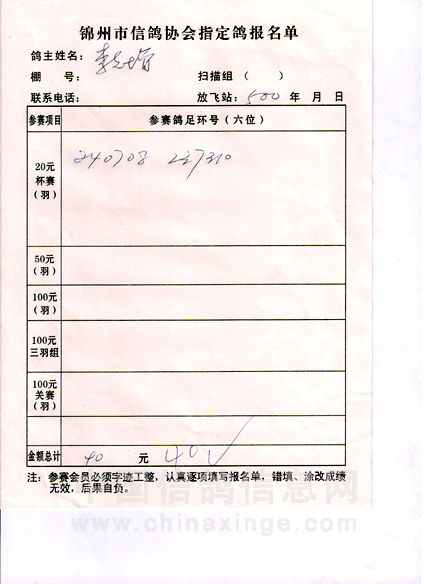 锦州市信鸽协会指定鸽报名单
鸽主姓名：李
棚 号： 扫描组 （ ）
联系电话： 放飞站：500 年 月 日
参赛项目 参赛鸽足环号（六位）
20元
杯赛
（羽）
240708 227310
50元
（羽）
100元
（羽）
100元
三羽组
100元
关赛
（羽）
金额总计 40 元 40
注：参赛会员必须字迹工整，认真逐项填写报名单，错填、涂改成绩
无效，后果自负。
中国信鸽信息网
www.chinaxinge.com